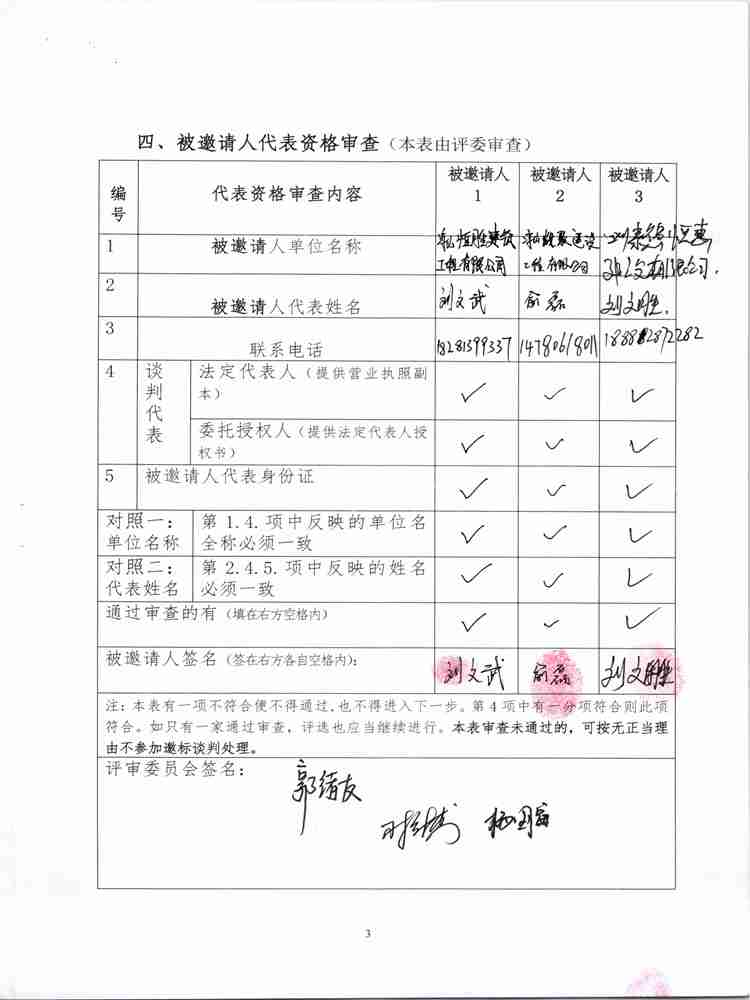 四、被邀请人代表资格审查（本表由评委审查）
编号 代表资格审查内容 被邀请人1 被邀请人2 被邀请人3
1 被邀请人单位名称
工程有限公司 工程有限公司 有限公司.
2 被邀请人代表姓名 刘文武 俞磊 刘文胜.
3 联系电话 18281399337 14780618011 18882872282
4 谈判代表 法定代表人（提供营业执照副
本） ✓ ✓ ✓
委托授权人（提供法定代表人授
权书） ✓ ✓ ✓
5 被邀请人代表身份证 ✓ ✓ ✓
对照一： 第 1.4.项中反映的单位名
单位名称 全称必须一致 ✓ ✓ ✓
对照二： 第 2.4.5.项中反映的姓名
代表姓名 必须一致 ✓ ✓ ✓
通过审查的有（填在右方空格内） ✓ ✓ ✓
被邀请人签名（签在右方各自空格内）： 刘文武 俞磊 刘文胜
注：本表有一项不符合便不得通过，也不得进入下一步。第 4 项中有一分项符合则此项
符合。如只有一家通过审查，评选也应当继续进行。本表审查未通过的，可按无正当理
由不参加邀标谈判处理。
评审委员会签名：
郭绪友
3